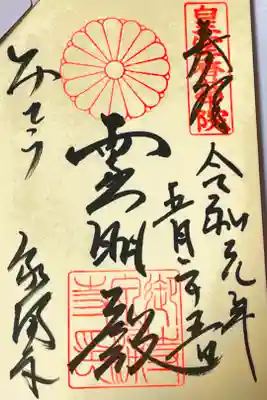 皇室香華院
奉拝
令和元年
五月二十五日
霊明殿
みてら
泉涌寺